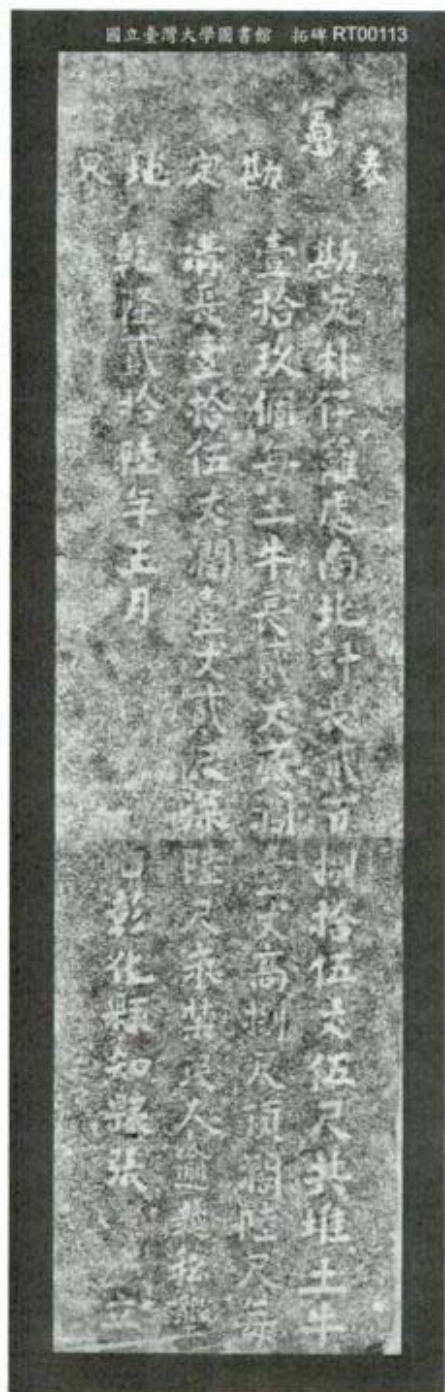 國立臺灣大學圖書館 拓碑 RT00113
奉憲勘定地界
勘定朴仔籬處南北計長貳百捌拾伍丈伍尺共堆土牛
壹拾玖個每土牛長貳丈底闊壹丈高捌尺頂闊陸尺每
溝長壹拾伍丈闊壹丈貳尺深陸尺永禁民人逾越私墾
乾隆貳拾陸年正月 日彰化縣知縣張 立